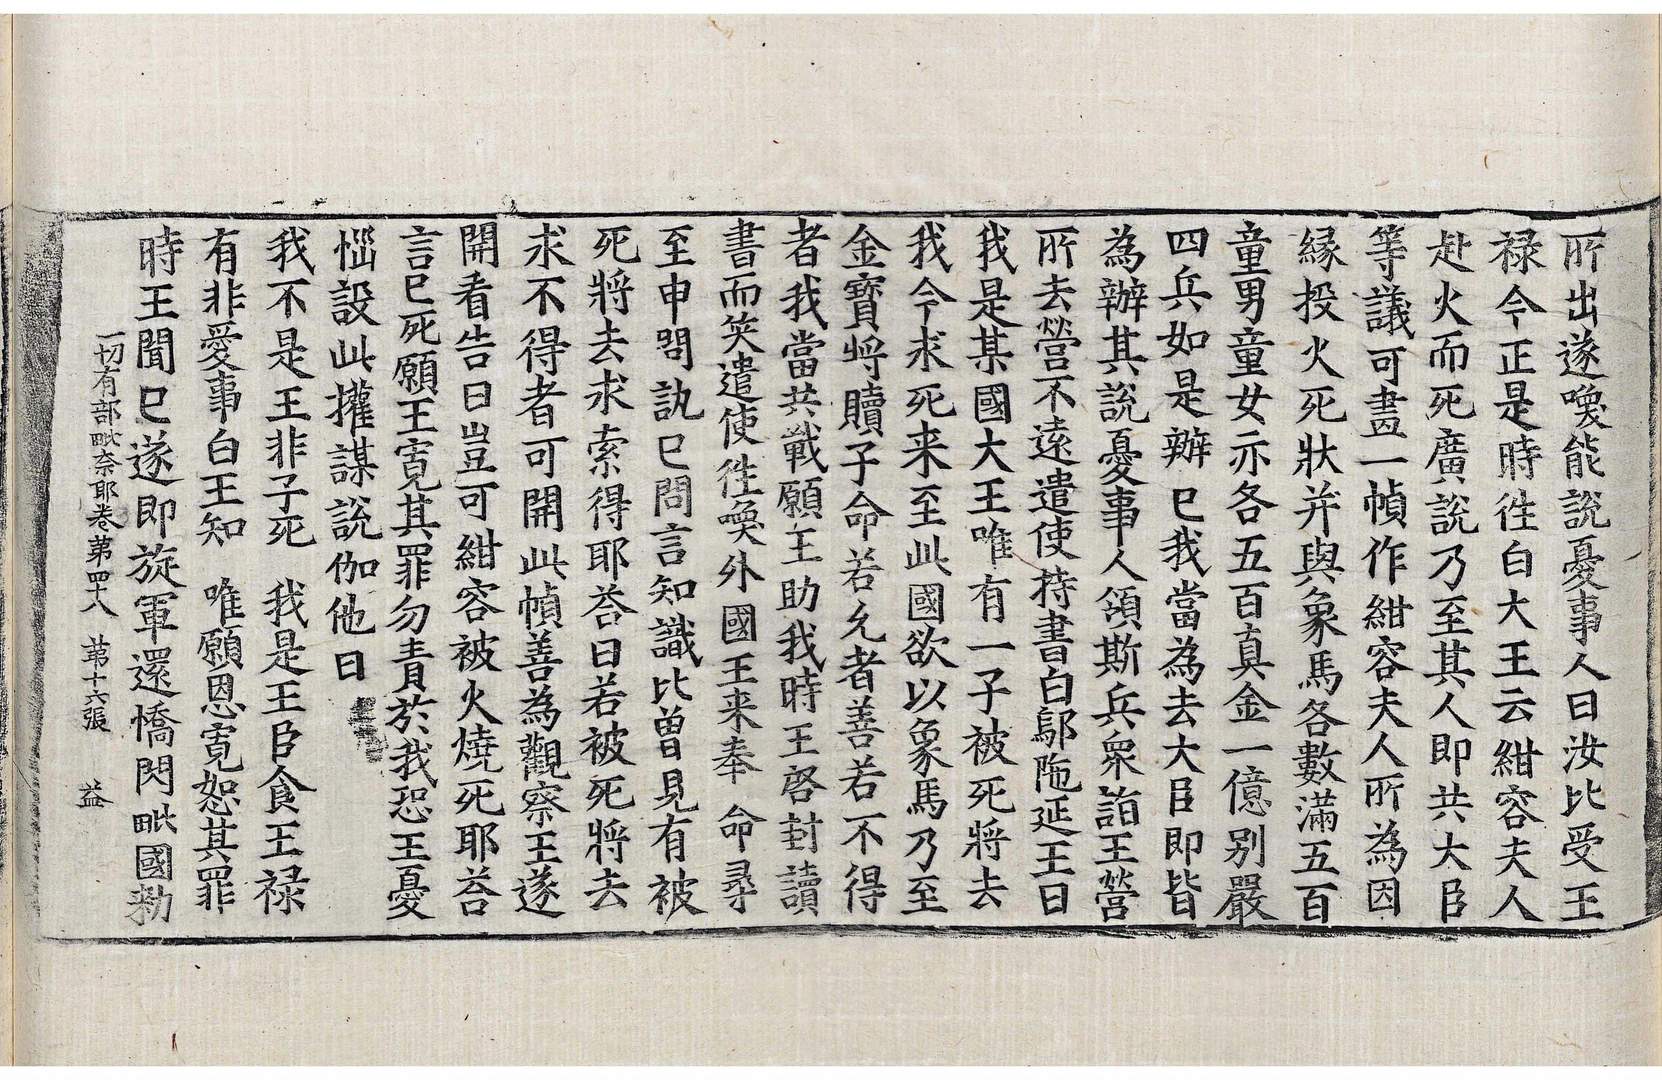 所出遂喚能說憂事人曰汝比受王
禄今正是時徃白大王云紺容夫人
赴火而死廣說乃至其人即共大臣
等議可畫一幀作紺容夫人所為因
緣投火死狀并與象馬各數滿五百
童男童女亦各五百真金一億别嚴
四兵如是辦巳我當為去大臣即皆
為辦其說憂事人領斯兵衆詣王營
所去營不遠遣使持書白鄔陁延王曰
我是某國大王唯有一子被死將去
我今求死来至此國欲以象馬乃至
金寶將贖子命若允者善若不得
者我當共戰願王助我時王啓封讀
書而笑遣使徃喚外國王来奉命尋
至申問訖巳問言知識比曾見有被
死將去求索得耶荅曰若被死將去
求不得者可開此幀善為觀察王遂
開看告曰豈可紺容被火燒死耶荅
言巳死願王寬其罪勿責於我恐王憂
惱設此權謀說伽他曰
我不是王非子死　我是王臣食王禄
有非愛事白王知　唯願恩寬恕其罪
時王聞巳遂即旋軍還憍閃毗國勑
一切有部毗奈耶卷第四十八　第十六張　益